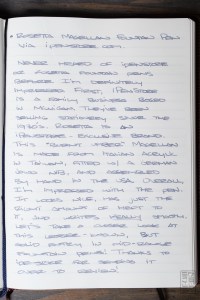 • ROSETTA MAGELLAN FOUNTAIN PEN
VIA iPENSTORE.COM.
NEVER HEARD OF iPENSTORE
OR ROSETTA FOUNTAIN PENS
BEFORE. I'M DEFINITELY
IMPRESSED. FIRST, iPENSTORE
IS A FAMILY BUSINESS BASED
IN MICHIGAN. THEY'VE BEEN
SELLING STATIONERY SINCE THE
1960'S. ROSETTA IS AN
iPENSTORE EXCLUSIVE BRAND.
THIS "BURNT AMBER" MAGELLAN
IS MADE FROM ITALIAN ACRYLIC
IN TAIWAN, FITTED W/ GERMAN
NIB, AND ASSEMBLED
BY HAND IN THE USA. OVERALL
I'M IMPRESSED WITH THE PEN.
IT LOOKS NICE, HAS JUST THE
RIGHT AMOUNT OF HEFT TO
IT, AND WRITES REALLY SMOOTH.
LET'S TAKE A CLOSER LOOK AT
THIS LESSER-KNOWN, BUT
SOLID ENTRY IN MID-RANGE
FOUNTAIN PENS. THANKS TO
FOR SENDING IT
OVER TO REVIEW!